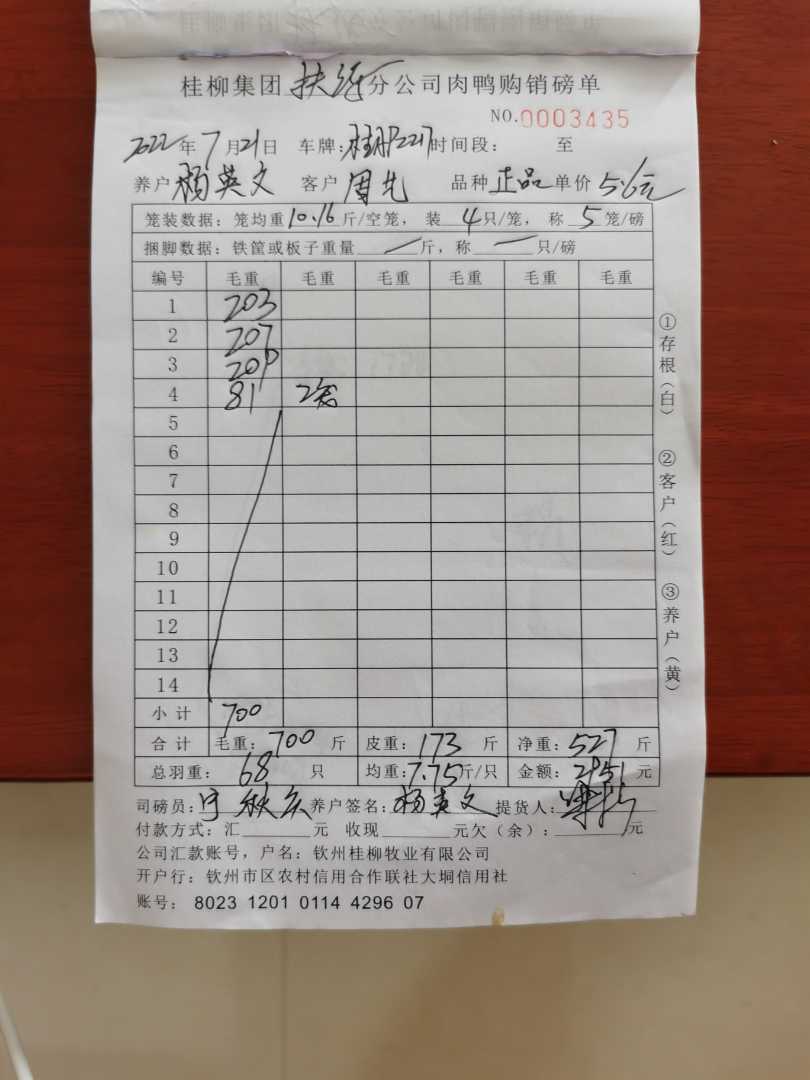 桂柳集团 扶绥 分公司肉鸭购销磅单
NO.0003435
2022年7月21日 车牌: 时间段: 至
养户 杨英文 客户 周先 品种 正品 单价 5.6元
笼装数据: 笼均重 10.16 斤/空笼, 装 4 只/笼, 称 5 笼/磅
捆脚数据: 铁筐或板子重量 — 斤, 称 — 只/磅
编号 毛重 毛重 毛重 毛重 毛重 毛重
1 203
2 207
3 209
4 81 2笼
5
6
7
8
9
10
11
12
13
14
小计 700
合计 毛重: 700 斤 皮重: 173 斤 净重: 527 斤
总羽重: 68 只 均重: 7.75斤/只 金额: 2951 元
司磅员: 养户签名: 杨英文 提货人:
付款方式: 汇 元 收现 元欠(余): 元
公司汇款账号, 户名: 钦州桂柳牧业有限公司
开户行: 钦州市区农村信用合作联社大垌信用社
账号: 8023 1201 0114 4296 07
①存根(白)
②客户(红)
③养户(黄)